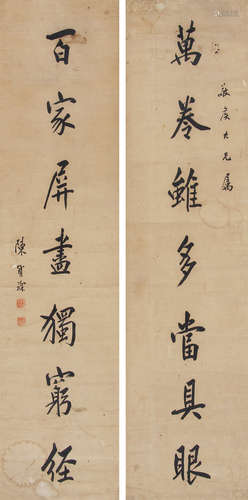 大兄屬
萬卷雖多當具眼
百家屏盡獨窮經
陳寶琛